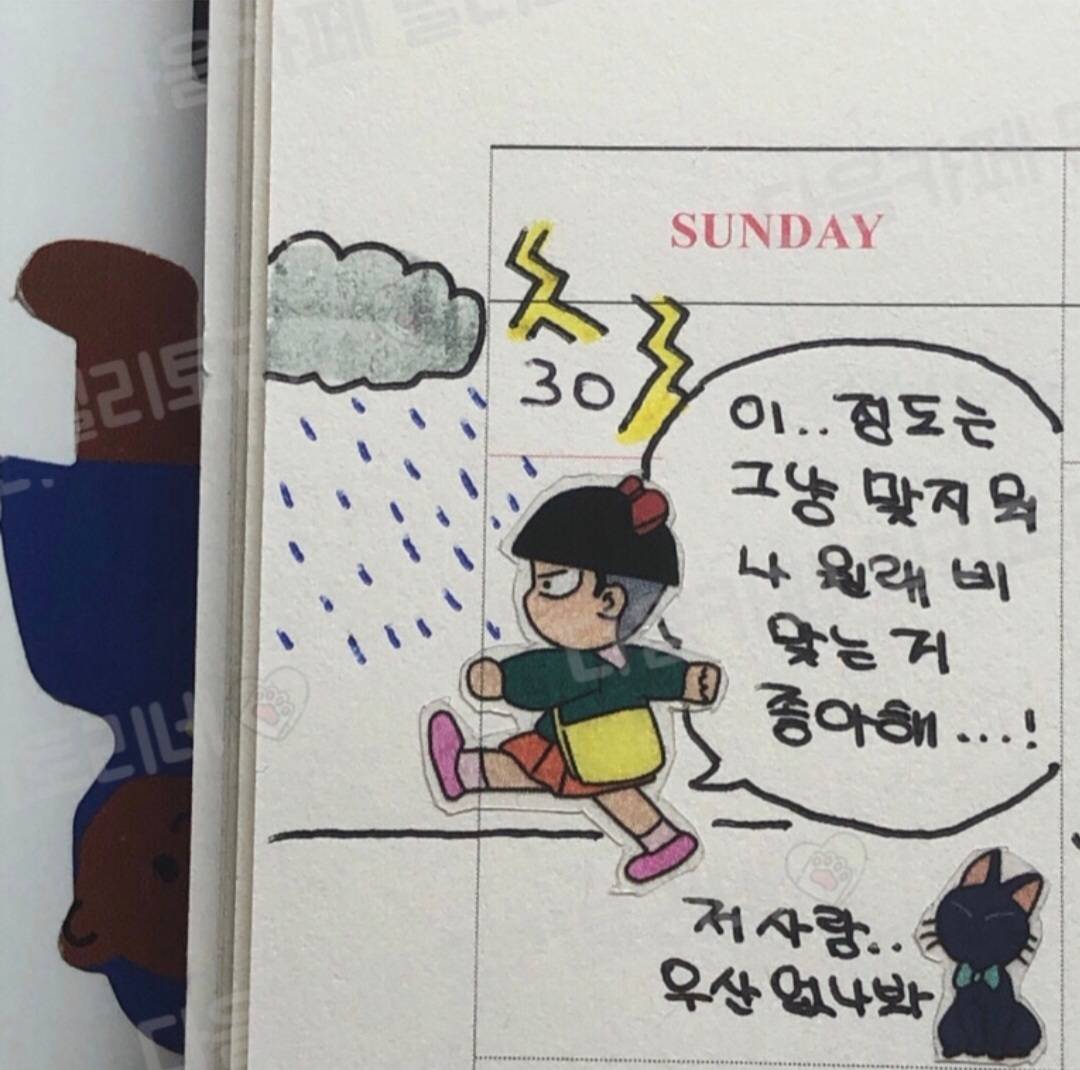 SUNDAY
30
이.. 정도는
그냥 맞지 뭐
나 원래 비
맞는 거
좋아해...!
저 사람..
우산 없나봐